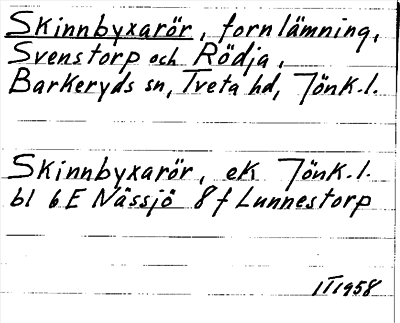 Skinnbyxarör, fornlämning,
Svenstorp och Rödja,
Barkeryds sn, Tveta hd, Jönk.l.
Skinnbyxarör, ek Jönk.l.
bl 6E Nässjö 8f Lunnestorp
1II1958